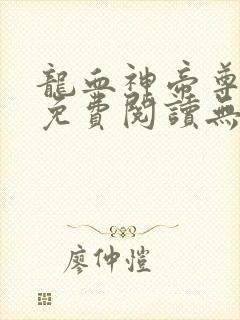 龍血神帝尊
免費閱讀無
廖仲愷